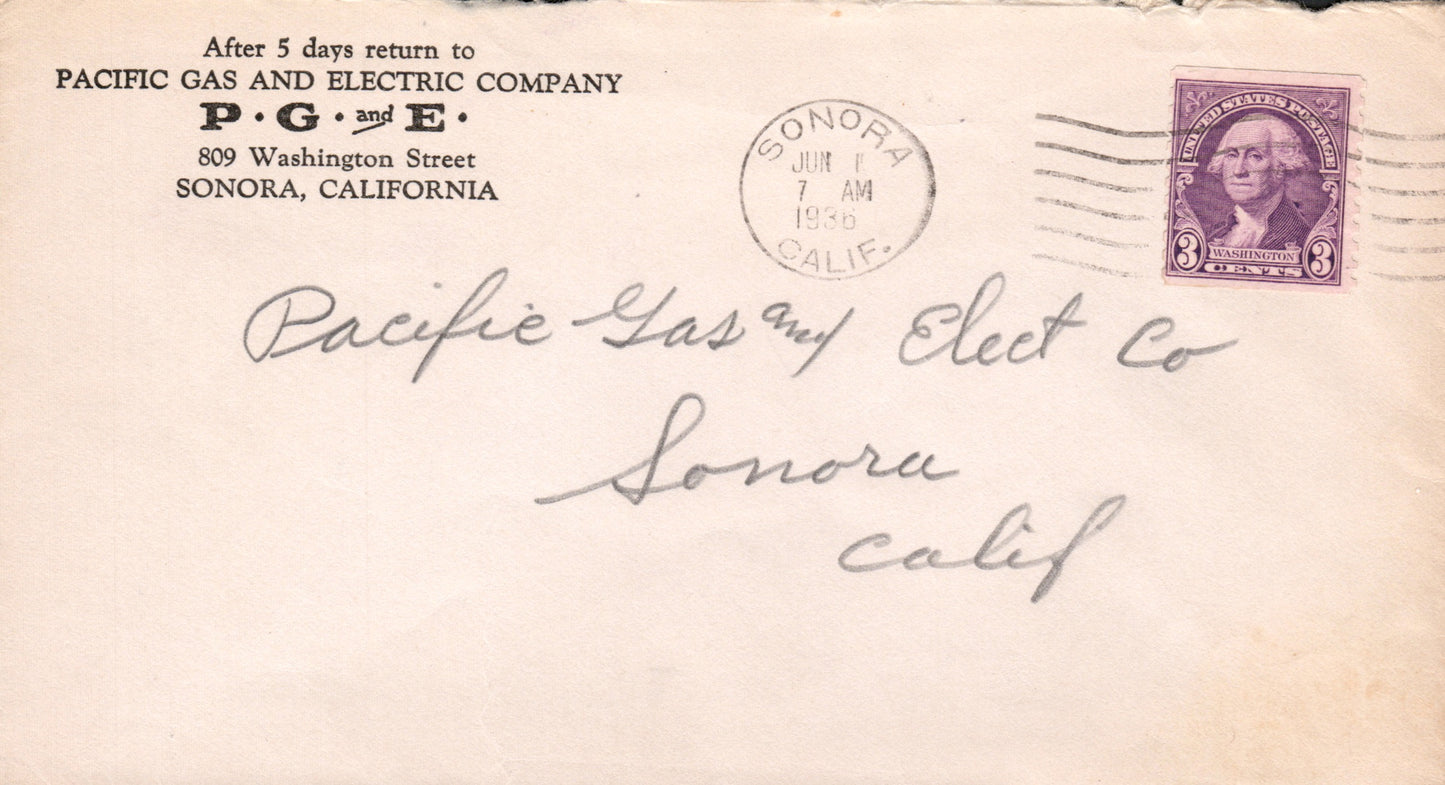 After 5 days return to
PACIFIC GAS AND ELECTRIC COMPANY
P · G · and E ·
809 Washington Street
SONORA, CALIFORNIA
SONORA
JUN 1
7 AM
1936
CALIF.
UNITED STATES POSTAGE
3 WASHINGTON 3
CENTS
Pacific Gas and Elect Co
Sonora
Calif